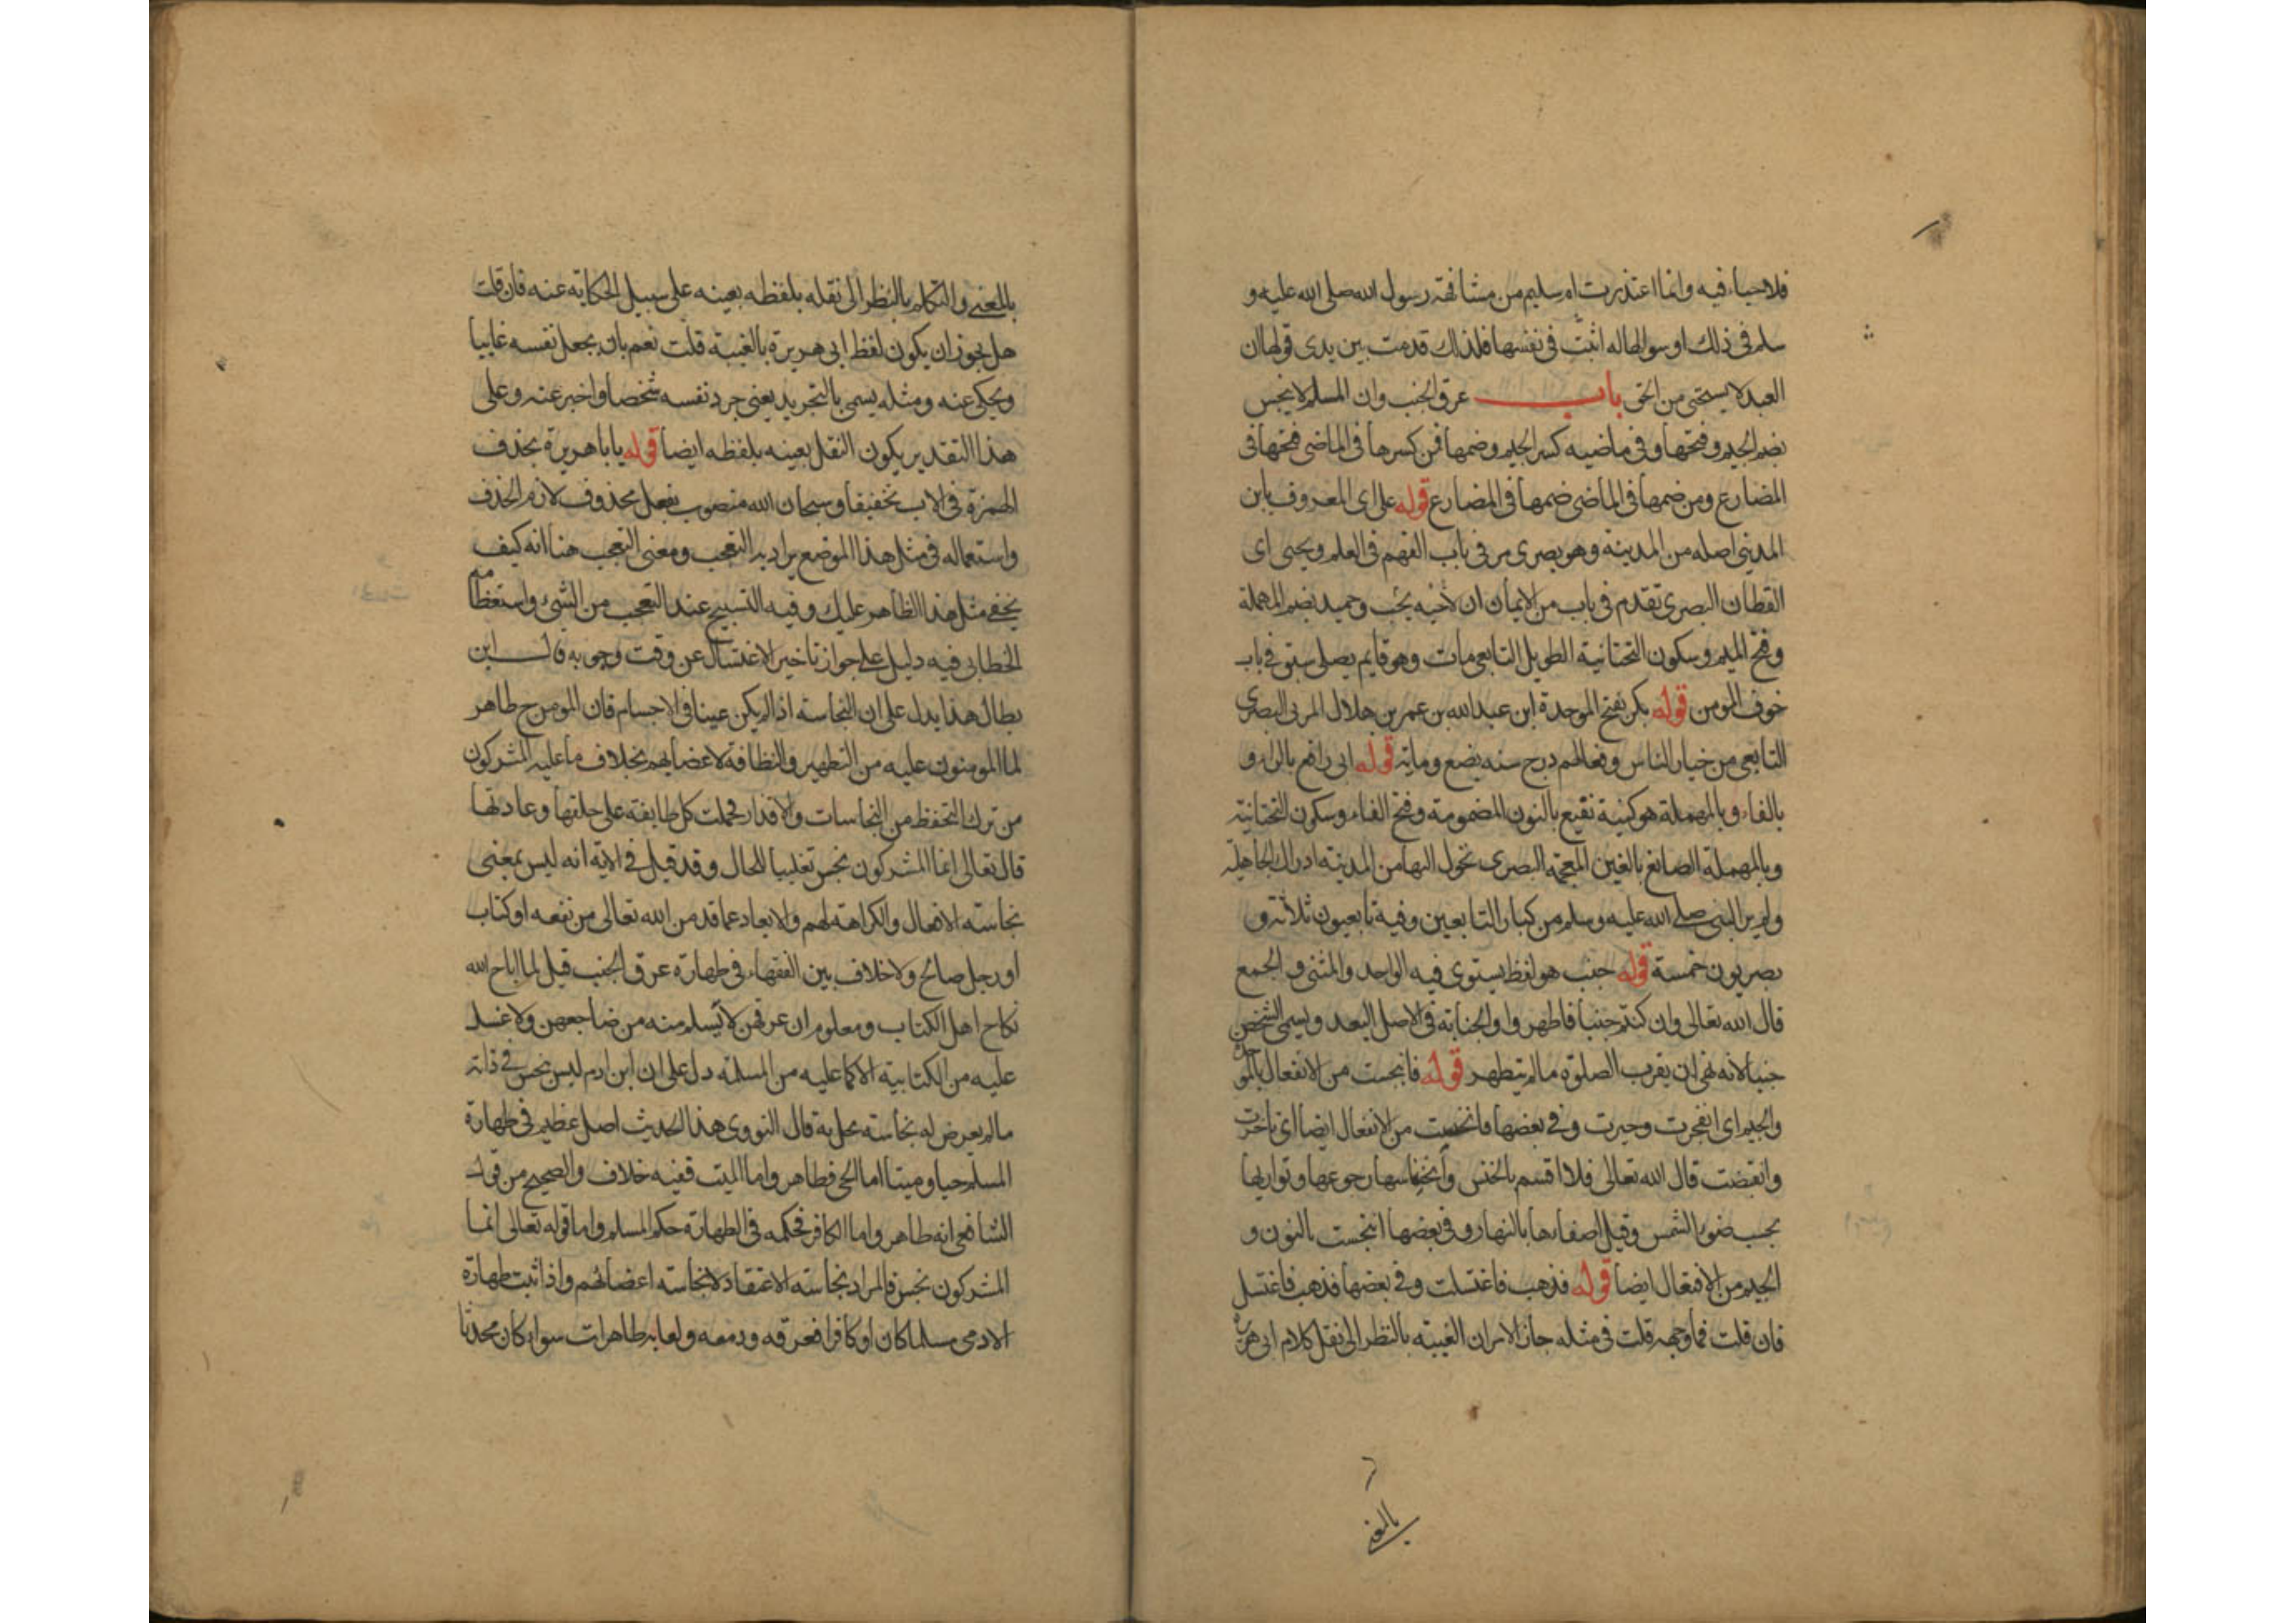 فلا حياء فيه وانما اعتذرت ام سليم من مشافهة رسول الله صلى الله عليه و
سلم في ذلك او سوالها له اثبت في نفسها فلذلك قدمت بين يدى قولها ان
العبد لا يستحى من الحق باب عرق الجنب وان المسلم لا ينجس
بضم الجيم وفتحها وفى ماضيه كسر الجيم وضمها فمن كسرها فى الماضى فتحها فى
المضارع ومن ضمها فى الماضى ضمها فى المضارع قوله على اى المعروف بابن
المدينى اصله من المدينة وهو بصرى مر فى باب الفهم فى العلم ويحيى اى
القطان البصرى تقدم فى باب من الايمان ان لاخيه يحب وحميد بضم المهملة
وفتح الميم وسكون التحتانية الطويل التابعى مات وهو قايم يصلى سبق فى باب
خوف المومن قوله بكر بفتح الموحدة ابن عبد الله بن عمر بن هلال المزنى البصرى
التابعى من خيار الناس وفقهائهم درج سنه بضع ومايه قوله ابى رافع بالراء و
بالفاء وبالمهملة هو كنية نفيع بالنون المضمومة وفتح الفاء وسكون التحتانية
وبالمهملة الصائغ بالغين المعجمة البصرى تحول اليها من المدينه ادرك الجاهلية
ولم ير النبى صلى الله عليه وسلم من كبار التابعين وفيه تابعيون ثلاثة و
بصريون خمسة قوله جنب هو لفظ يستوى فيه الواحد والمثنى و الجمع
قال الله تعالى وان كنتم جنبا فاطهروا والجنابة فى الاصل البعد ويسمى الشخص
جنبا لانه نهى ان يقرب الصلوة مالم يتطهر قوله فانبجست من الانفعال بالموحدة
والجيم اى انفجرت وجرت وفى بعضها فانخنست من الانفعال ايضا اى تاخرت
وانقبضت قال الله تعالى فلا اقسم بالخنس وانخناسها رجوعها وتواريها
تحت ضوء الشمس وقيل اصفارها بالنهار وفى بعضها انتجست بالنون و
الجيم من الافتعال ايضا قوله فذهب فاغتسلت وفى بعضها فذهب فاغتسل
فان قلت فما وجهه قلت فى مثله جاز الامران الغيبته بالنظر الى نقل كلام ابى هريرة
بالمعنى
بالمعنى والتكلم بالنظر الى نقله بلفظه بعينه على سبيل الحكاية عنه فان قلت
هل يجوز ان يكون لفظ ابى هريرة بالغيبة قلت نعم بان يجعل نفسه غايبا
ويحكى عنه ومثله يسمى بالتجريد يعنى جرد نفسه شخصا واخبر عنه وعلى
هذا التقدير يكون النقل بعينه بلفظه ايضا قوله يابا هريرة بحذف
الهمزة فى الاب تخفيفا وسبحان الله منصوب بفعل محذوف لازم الحذف
واستعماله فى مثل هذا الموضع يراد به التعجب ومعنى التعجب هنا انه كيف
يخفى مثل هذا الظاهر عليك وفيه التسبيح عند التعجب من الشىء واستعظامه
الخطابى فيه دليل على جواز تاخير الاغتسال عن وقت وجوبه قال ابن
بطال هذا يدل على ان النجاسته اذا لم يكن عينا فى الاجسام فان المومن ح طاهر
لما المومنون عليه من التطهير والنظافة لاعضايهم بخلاف ما عليه المشركون
من ترك التحفظ من النجاسات والاقذار فحملت كل طايفته على خلقها وعادتها
قال تعالى انما المشركون نجس تغليبا للحال وقد قيل فى الاية انه ليس بمعنى
نجاسته الافعال والكراهة لهم والابعاد عما قدس الله تعالى من بقعه او كتاب
او رجل صالح ولا خلاف بين الفقهاء فى طهارة عرق الجنب قيل لما اباح الله
نكاح اهل الكتاب ومعلوم ان عرقهن لا يسلم منه من ضاجعهن ولا غسل
عليه من الكتابية الا كما عليه من المسلمة دل على ان ابن ادم ليس بنجس فى ذاته
مالم يعرض له نجاسته تحل به قال النووى هذا الحديث اصل عظيم فى طهارة
المسلم حيا وميتا اما الحى فطاهر واما الميت ففيه خلاف والصحيح من قول
الشافعى انه طاهر واما الكافر فحكمه فى الطهارة حكم المسلم واما قوله تعالى انما
المشركون نجس فالمراد نجاسته الاعتقاد لا نجاسته اعضائهم واذا ثبت طهارة
الادمى مسلما كان او كافرا فعرقه ودمعه ولعابه طاهرات سواء كان محدثا